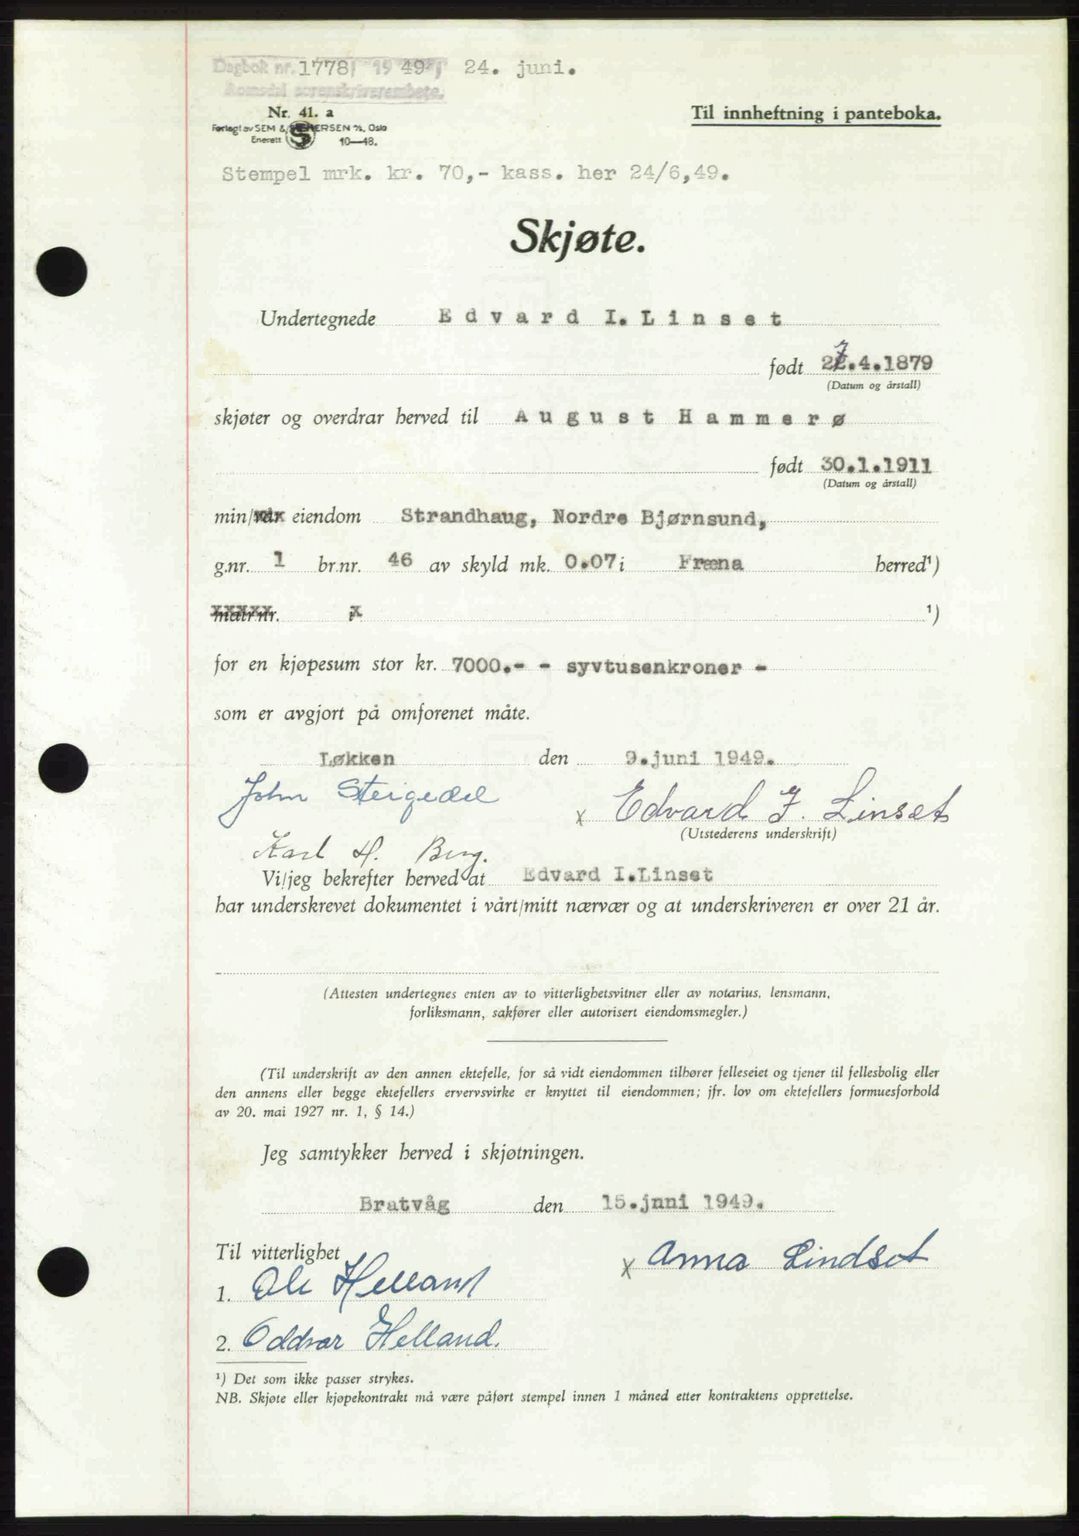 Dagbok nr. 1778 / 1949, 24. juni.
Romsdal sorenskriverembete.
Nr. 41. a
Til innheftning i panteboka.
Forlagt av SEM & STENERSEN A/S, Oslo
Enerett 10—48.
Stempel mrk. kr. 70,- kass. her 24/6,49.
Skjøte.
Undertegnede Edvard I. Linset
født 27.4.1879
(Datum og årstall)
skjøter og overdrar herved til August Hammerø
født 30.1.1911
(Datum og årstall)
min/vår eiendom Strandhaug, Nordre Bjørnsund,
g.nr. 1 br.nr. 46 av skyld mk. 0.07 i Fræna herred¹)
matr.nr. i ¹)
for en kjøpesum stor kr. 7000.- - syvtusenkroner -
som er avgjort på omforenet måte.
Løkken den 9.juni 1949.
John Steigedal x Edvard I. Linset
(Utstederens underskrift)
Karl H. Berg.
Vi/jeg bekrefter herved at Edvard I.Linset
har underskrevet dokumentet i vårt/mitt nærvær og at underskriveren er over 21 år.
(Attesten undertegnes enten av to vitterlighetsvitner eller av notarius, lensmann,
forliksmann, sakfører eller autorisert eiendomsmegler.)
(Til underskrift av den annen ektefelle, for så vidt eiendommen tilhører felleseiet og tjener til fellesbolig eller
den annens eller begge ektefellers ervervsvirke er knyttet til eiendommen; jfr. lov om ektefellers formuesforhold
av 20. mai 1927 nr. 1, § 14.)
Jeg samtykker herved i skjøtningen.
Bratvåg den 15.jnni 1949.
Til vitterlighet x Anna Lindset
1. Ole Helland
2. Oddvar Helland.
¹) Det som ikke passer strykes.
NB. Skjøte eller kjøpekontrakt må være påført stempel innen 1 måned etter kontraktens opprettelse.